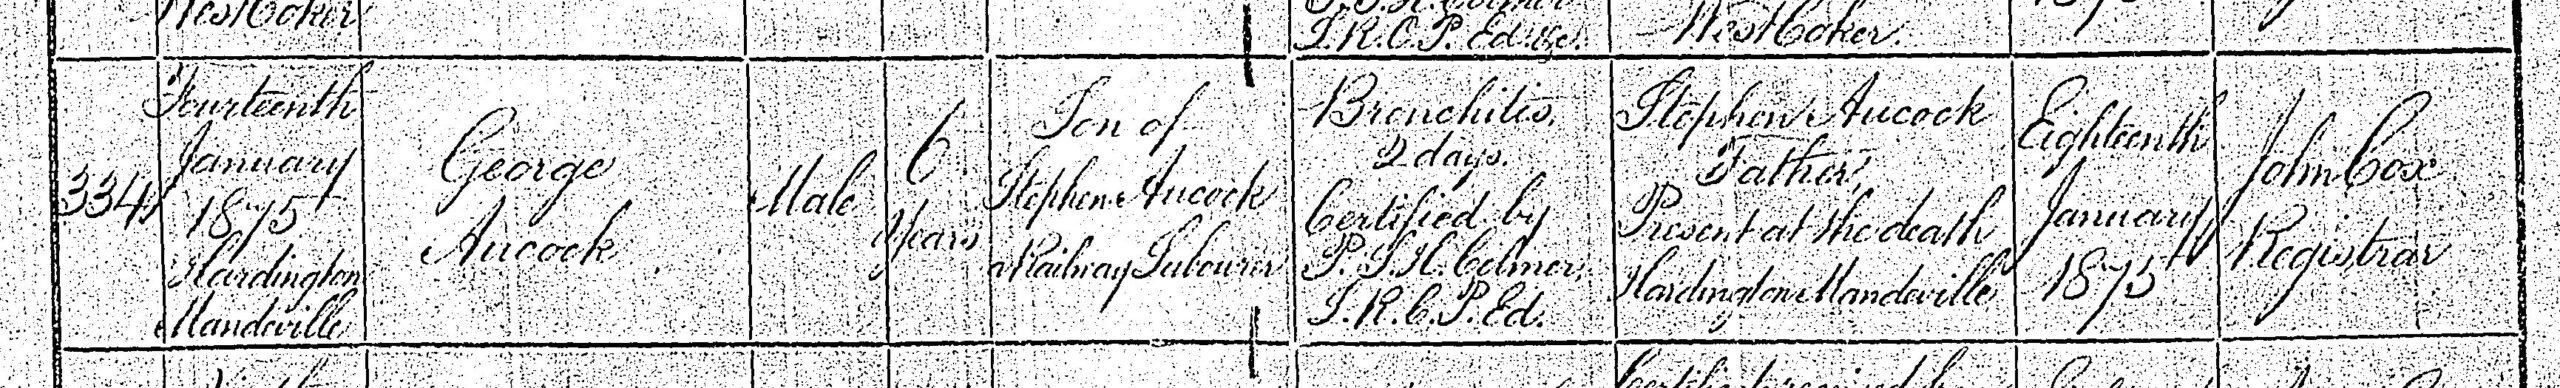 West Coker
L.R.C.P. Ed. &c.
West Coker.
334
Fourteenth
January
1875
Hardington
Mandeville
George
Aucock
Male
6
Years
Son of
Stephen Aucock
a Railway Labourer
Bronchitis,
2 days.
Certified by
P. S. H. Colmer,
L.R.C.P. Ed.
Stephen Aucock
Father,
Present at the death
Hardington Mandeville
Eighteenth
January
1875
John Cox
Registrar